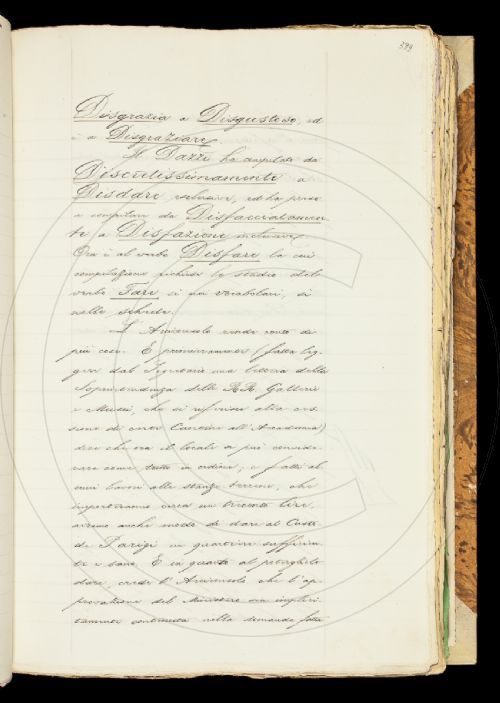 399
Disgrazia a Disgustoso, ed
è a Disgraziare.
Il Dazzi ha compilato da
Disutilissimamente a
Disdare esclusive, ed ha preso
a compilare da Disfavoratamen
te, a Disfazione inclusive.
Ora è al verbo Disfare la cui
compilazione richiede lo studio del
verbo Fare sì nei vocabolari, sì
nelle schede.
L'Arciconsolo rende conto di
più cose. E primieramente (fatta leg-
gere dal Segretario una lettera della
Soprintendenza delle RR. Gallerie
e Musei, che si riferisce alla ces
sione di certe Cartoni all'Accademia)
dice che ora il locale si può conside-
rare come tutto in ordine; e fatti al
cuni lavori alle stanze terrene, che
importeranno circa un trecento lire,
avremo anche modo di dare al Custo
de Farigi un quartiere sufficien
te e sano. E in quanto al
dare, crede l'Arciconsolo che l'ap-
provazione del Ministero sia implici
tamente contenuta nella domanda fatta